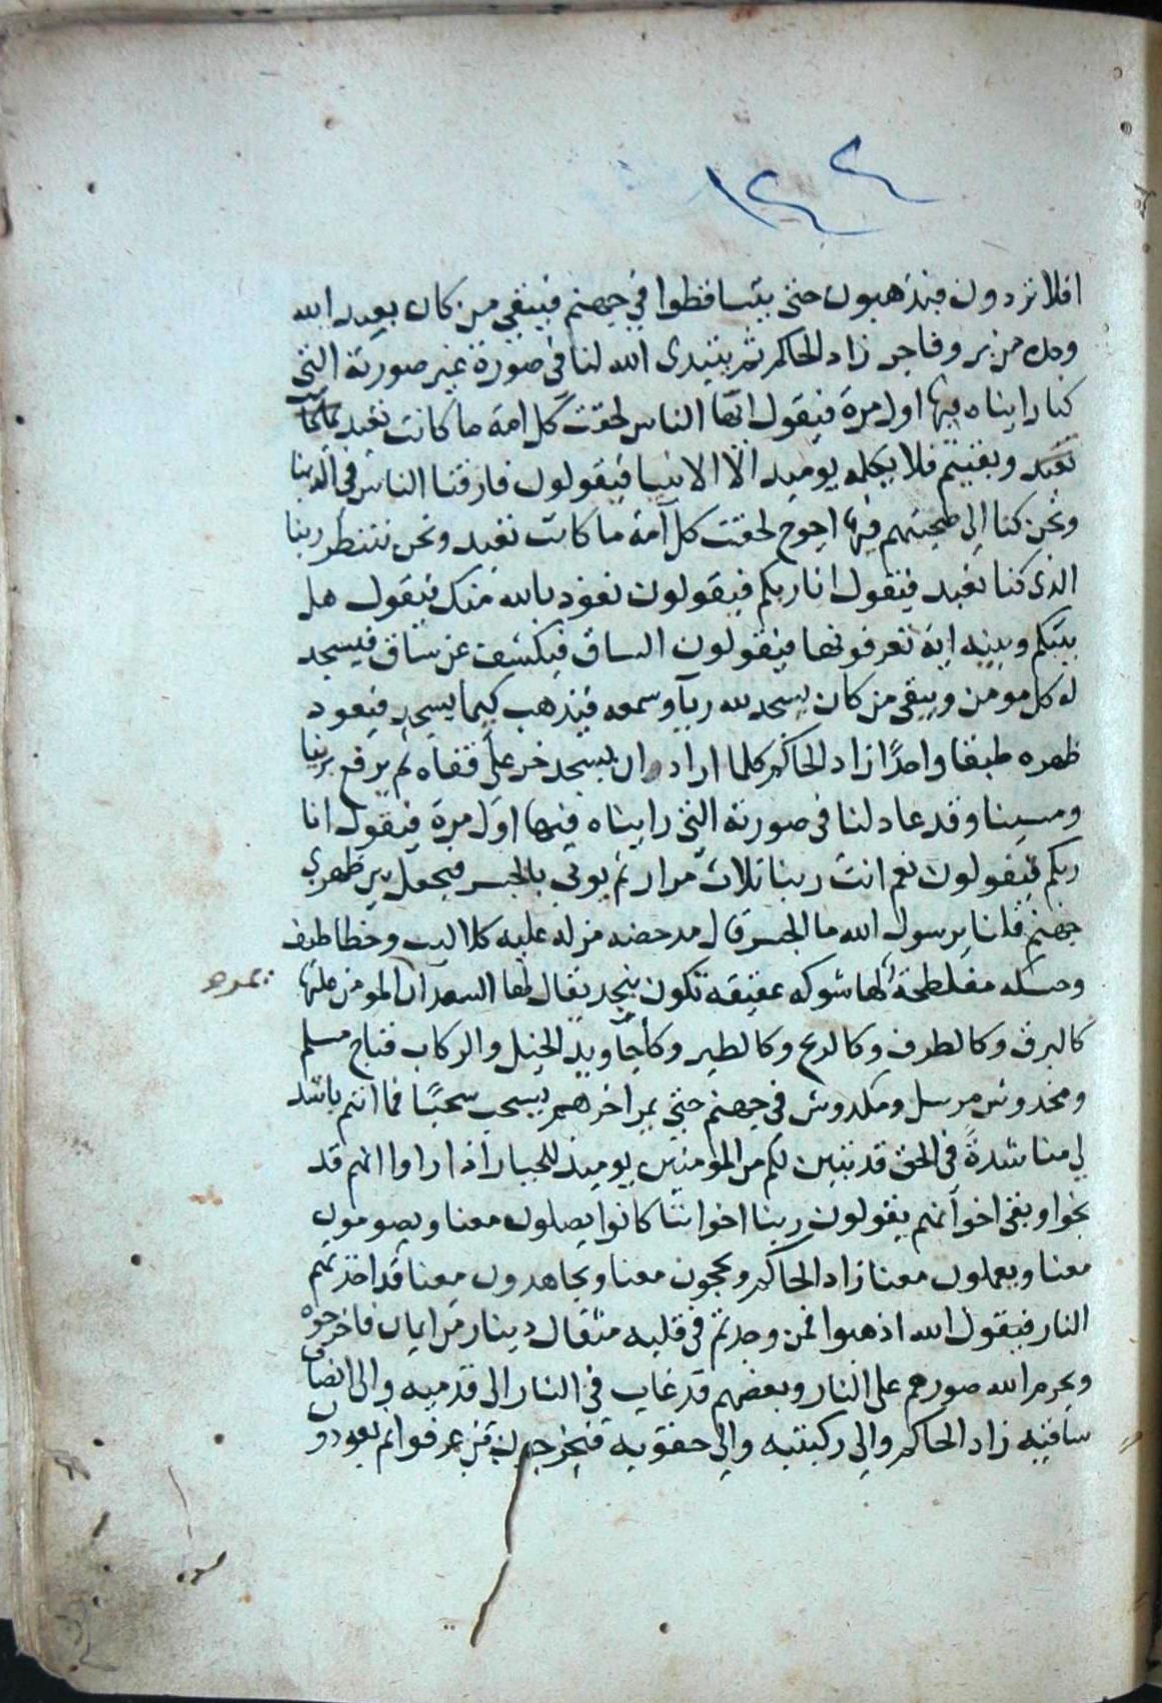 ١٢٢
افلا تردون فيذهبون حتى يتساقطوا في جهنم فيبقى من كان يعبد الله
وحده من بر وفاجر زاد الحاكم ثم يتبدى الله لنا في صورة غير صورته التى
كنا رايناه فيها اول مرة فيقول ايها الناس لحقت كل امة ما كانت تعبد
تعبد وبقيتم فلا يكلمه يوميذ الا الانبيا فيقولون فارقنا الناس في الدنيا
ونحن كنا الى صحبتهم فيها احوج لحقت كل امة ما كانت تعبد ونحن ننتظر ربنا
الذى كنا نعبد فيقول انا ربكم فيقولون نعوذ بالله منك فيقول هل
بينكم وبينه اية تعرفونها فيقولون الساق فيكشف عن ساق فيسجد
له كل مومن ويبقى من كان يسجد لله ريآ وسمعه فيذهب كيما يسجد فيعود
ظهره طبقا واحدًا زاد الحاكم كلما اراد ان يسجد خر على قفاه ثم يرفع برنا
ومسينا وقد عاد لنا فى صورته التى رايناه فيها اول مرة فيقول انا
ربكم فيقولون نعم انت ربنا ثلاث مرار ثم يوتى بالجسر فيجعل بين ظهري
جهنم قلنا يرسول الله ما الجسر قال مدحضه مزله عليه كلاليب وخطاطيف
وحسكه مفلطحة لها شوكه عقيقه تكون بنجد يقال لها السعدان المومن عليها
كالبرق وكالطرف وكالريح وكالطير وكاجاويد الخيل والركاب فناج مسلم
ومخدوش مرسل ومكدوش في جهنم حتى يمر اخرهم يسحب سحبًا فما انتم باشد
لي مناشدةً في الحق قد تبين لكم من المومنين يوميذ للجبار اذا راوا انهم قد
نجوا وبقى اخوانهم يقولون ربنا اخواننا كانوا يصلون معنا ويصومون
معنا ويعملون معنا زاد الحاكم ويحجون معنا ويجاهدون معنا قد اخذتهم
النار فيقول الله اذهبوا فمن وجدتم في قلبه مثقال دينار من ايمان فاخرجوه
ويحرم الله صورهم على النار وبعضهم قد غاب في النار الى قدميه والى انصاف
ساقيه زاد الحاكم والى ركبتيه والى حقويه فيخرجون من عرفوا ثم يعودون